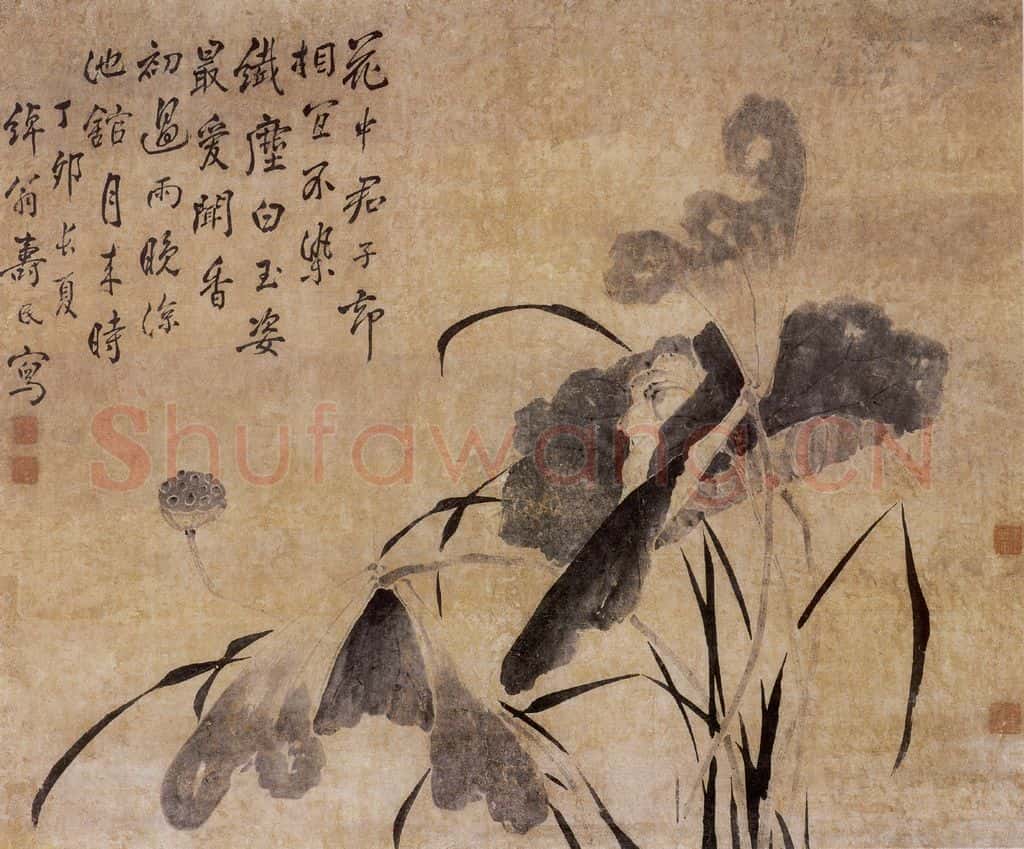 花中君子却
相宜不染
纖塵白玉姿
最愛聞香
初過雨晚涼
池館月來時
丁卯長夏
綽翁壽民寫
Shufawang.CN